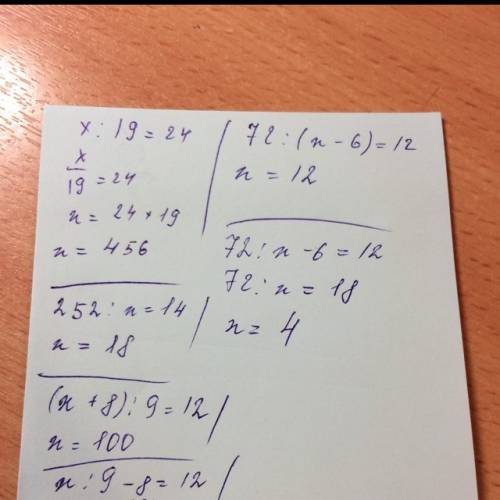 x : 19 = 24
x
19 = 24
x = 24 × 19
x = 456
252 : x = 14
x = 18
(x + 8) : 9 = 12
x = 100
x : 9 - 8 = 12
72 : (x - 6) = 12
x = 12
72 : x - 6 = 12
72 : x = 18
x = 4